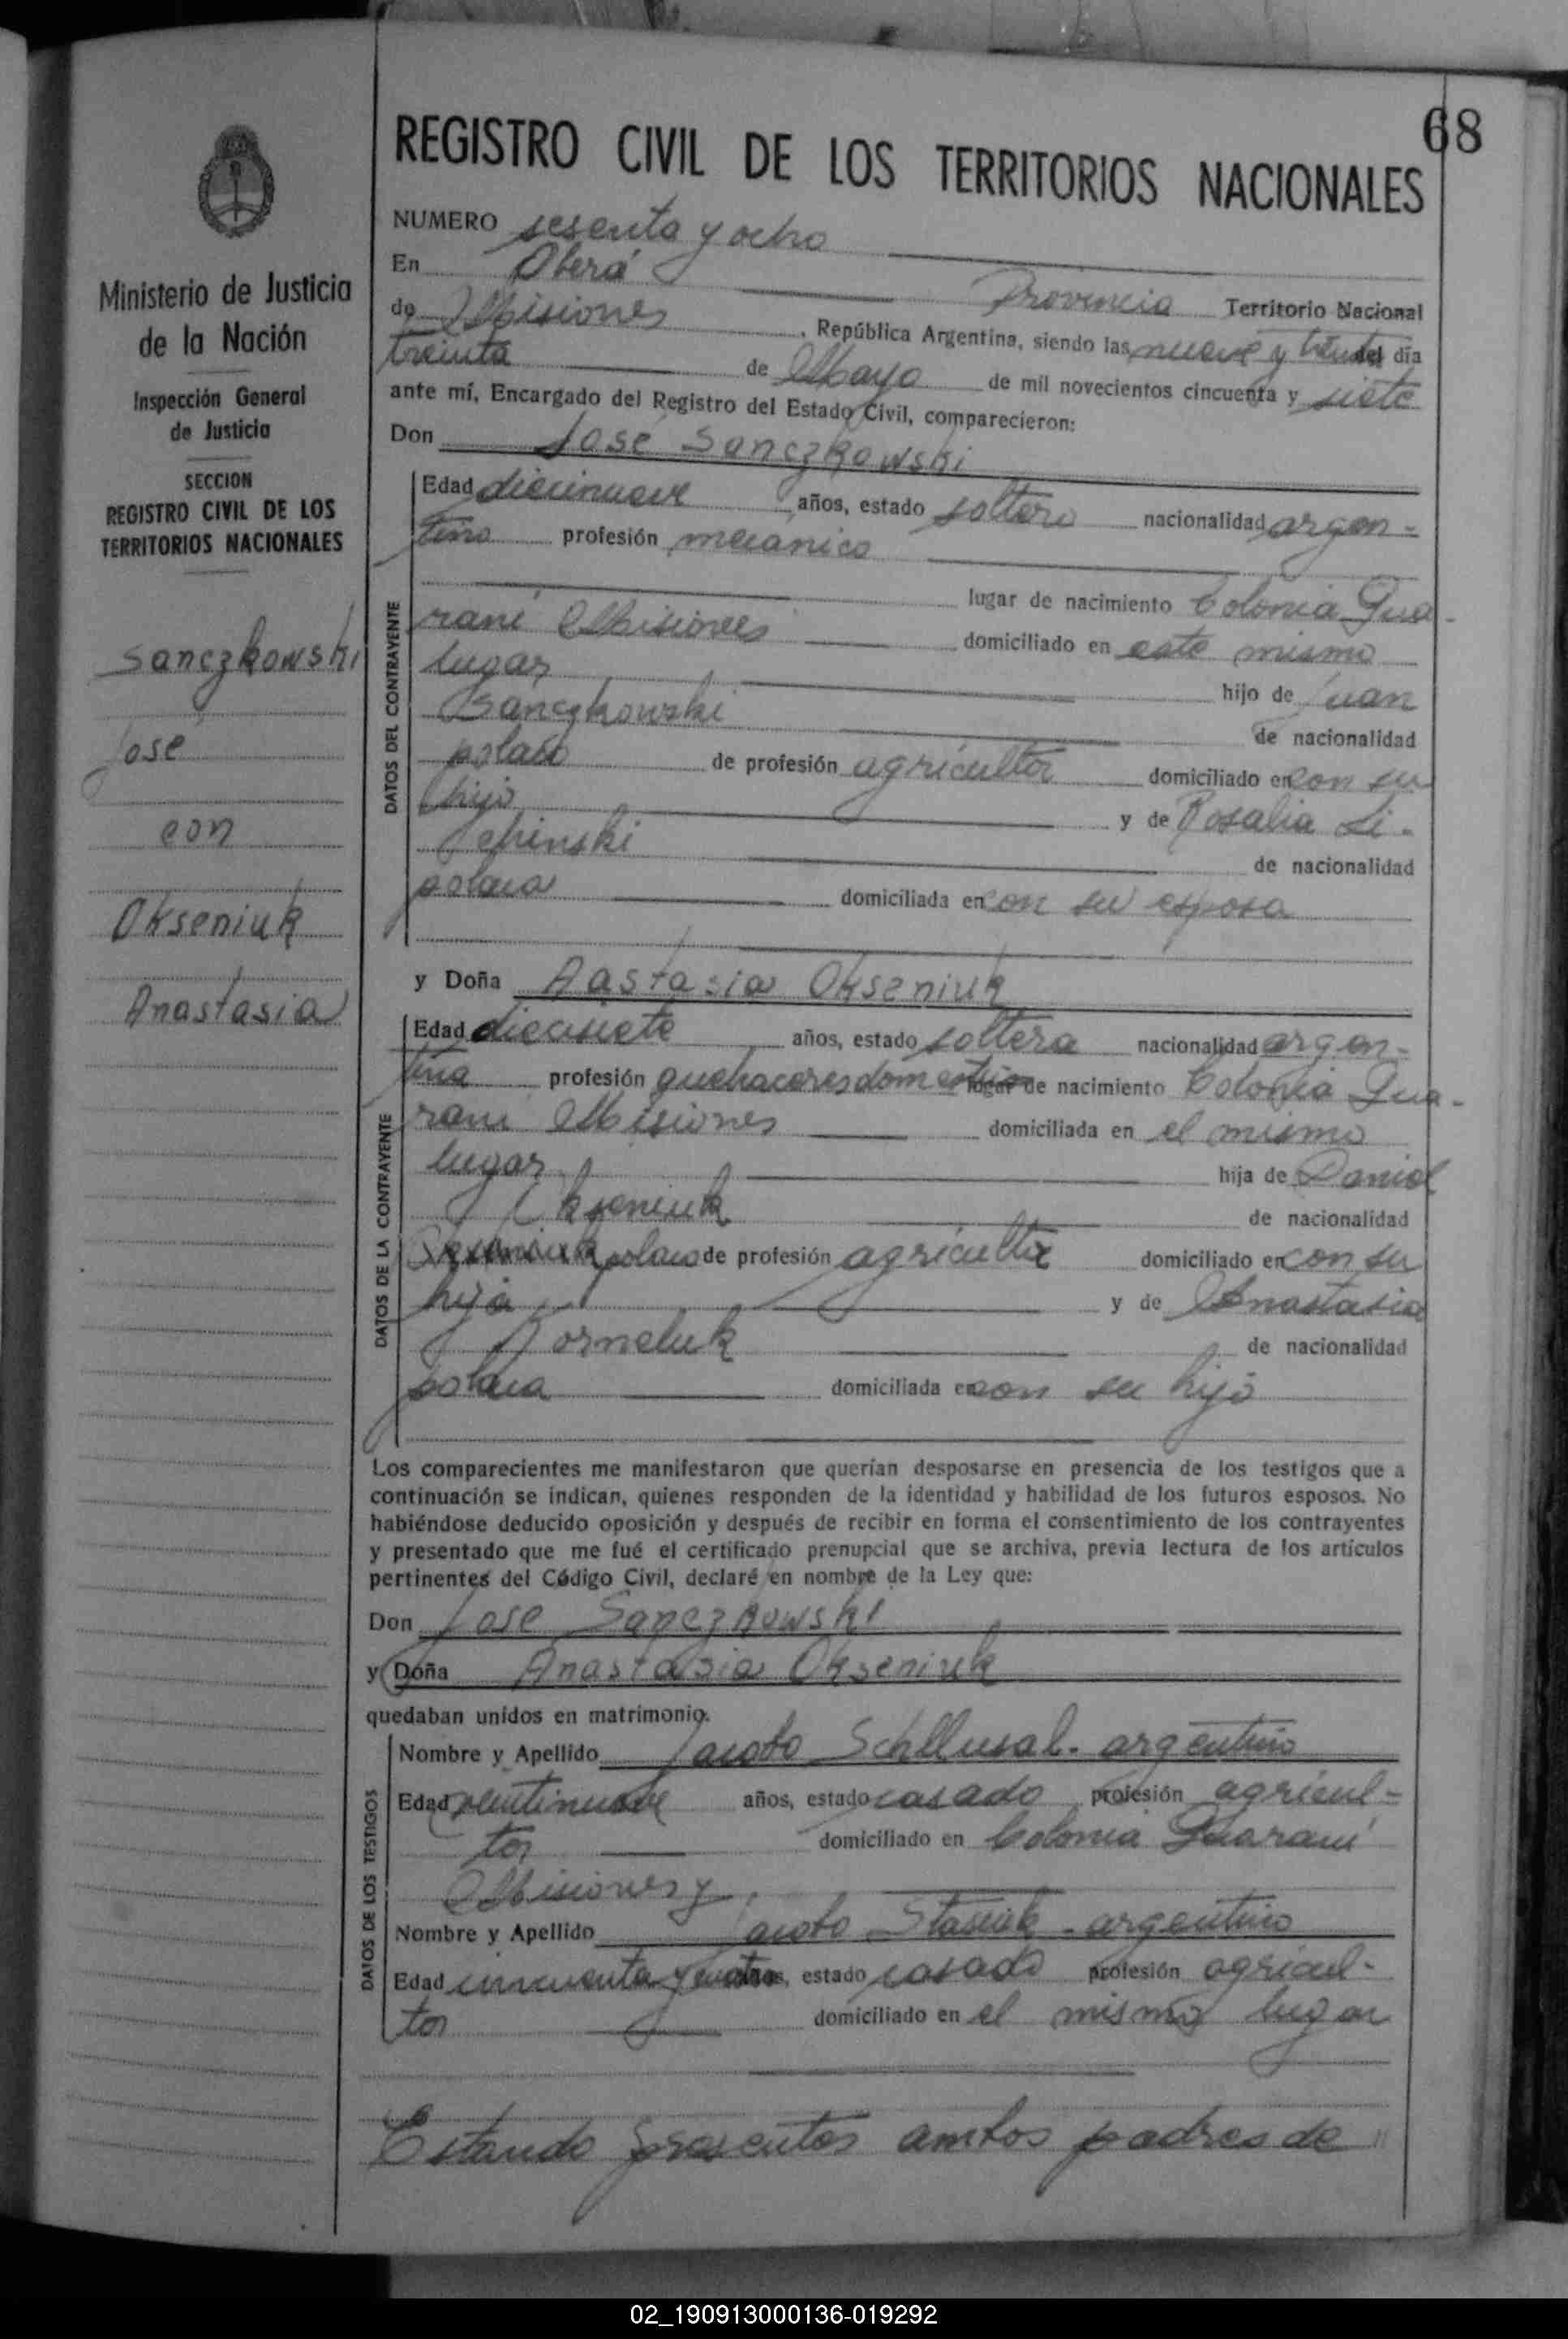 68
REGISTRO CIVIL DE LOS TERRITORIOS NACIONALES
NUMERO sesenta y ocho
En Oberá Provincia Territorio Nacional
de Misiones, República Argentina, siendo las nueve y treinta del día
treinta de Mayo de mil novecientos cincuenta y siete
ante mí, Encargado del Registro del Estado Civil, comparecieron:
Don José Sanczkowski
DATOS DEL CONTRAYENTE
Edad diecinueve años, estado soltero nacionalidad argen-
tino profesión mecánico
lugar de nacimiento Colonia Gua-
raní Misiones domiciliado en este mismo
lugar hijo de Juan
Sanczkowski de nacionalidad
polaco de profesión agricultor domiciliado en con su
hijo y de Rosalia Li-
chinski de nacionalidad
polaca domiciliada en con su esposo
y Doña Aastasia Okseniuk
DATOS DE LA CONTRAYENTE
Edad diecisiete años, estado soltera nacionalidad argen-
tina profesión quehaceres domesticos lugar de nacimiento Colonia Gua-
raní Misiones domiciliada en el mismo
lugar hija de Daniel
Okseniuk de nacionalidad
polaco de profesión agricultor domiciliado en con su
hija y de Anastasia
Korneluk de nacionalidad
polaca domiciliada en con su hijo
Los comparecientes me manifestaron que querían desposarse en presencia de los testigos que a
continuación se indican, quienes responden de la identidad y habilidad de los futuros esposos. No
habiéndose deducido oposición y después de recibir en forma el consentimiento de los contrayentes
y presentado que me fué el certificado prenupcial que se archiva, previa lectura de los artículos
pertinentes del Código Civil, declaré en nombre de la Ley que:
Don Jose Sanczkowski
y Doña Anastasia Okseniuk
quedaban unidos en matrimonio.
DATOS DE LOS TESTIGOS
Nombre y Apellido Jacobo argentino
Edad veintinueve años, estado casado profesión agricul-
tor domiciliado en Colonia Guaraní
Misiones y
Nombre y Apellido Jacobo Stasiuk - argentino
Edad cincuenta y cuatro años, estado casado profesión agricul-
tor domiciliado en el mismo lugar
Estando presentes ambos padres de //
Ministerio de Justicia
de la Nación
Inspección General
de Justicia
SECCION
REGISTRO CIVIL DE LOS
TERRITORIOS NACIONALES
Sanczkowski
José
con
Okseniuk
Anastasia
02_190913000136-019292